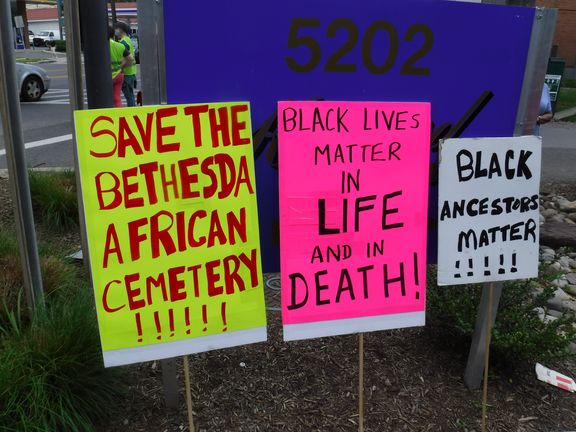 5202
SAVE THE
BETHESDA
AFRICAN
CEMETERY
!!!!!!
BLACK LIVES
MATTER
IN
LIFE
AND IN
DEATH!
BLACK
ANCESTORS
MATTER
!!!!!